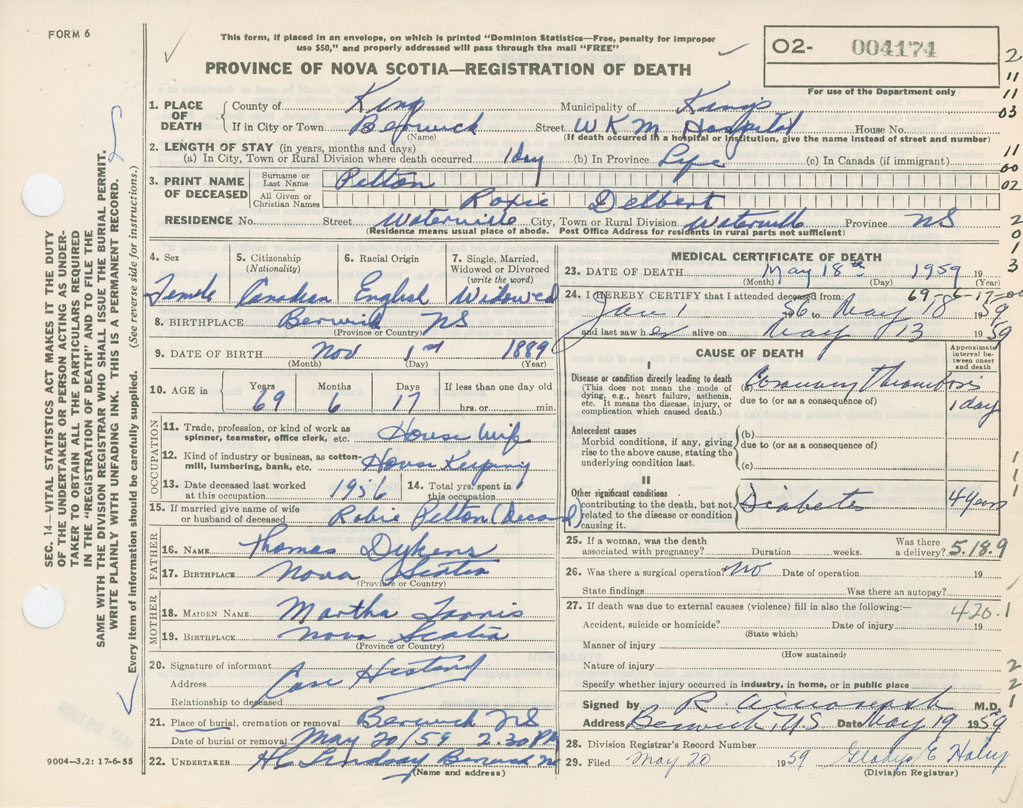 FORM 6
This form, if placed in an envelope, on which is printed "Dominion Statistics—Free, penalty for improper
use $50," and properly addressed will pass through the mail "FREE"
PROVINCE OF NOVA SCOTIA—REGISTRATION OF DEATH
O2- 004174
For use of the Department only
1. PLACE OF DEATH { County of Kings Municipality of Kings
If in City or Town Berwick Street W K M Hospital House No.
(Name) (If death occurred in a hospital or institution, give the name instead of street and number)
2. LENGTH OF STAY (in years, months and days)
(a) In City, Town or Rural Division where death occurred 1 day (b) In Province Life (c) In Canada (if immigrant)
3. PRINT NAME OF DECEASED { Surname or Last Name Pelton
All Given or Christian Names Delbert
RESIDENCE No. Street Waterville City, Town or Rural Division Waterville Province NS
(Residence means usual place of abode. Post Office Address for residents in rural parts not sufficient)
4. Sex 5. Citizenship (Nationality) 6. Racial Origin 7. Single, Married, Widowed or Divorced (write the word)
Female Canadian English Widowed
8. BIRTHPLACE Berwick NS
(Province or Country)
9. DATE OF BIRTH Nov 1 1889
(Month) (Day) (Year)
10. AGE in Years Months Days If less than one day old
69 6 17 hrs. or min.
OCCUPATION
11. Trade, profession, or kind of work as spinner, teamster, office clerk, etc. House Wife
12. Kind of industry or business, as cotton-mill, lumbering, bank, etc. House Keeping
13. Date deceased last worked at this occupation 1956 14. Total yrs. spent in this occupation
15. If married give name of wife or husband of deceased Robie Pelton
FATHER
16. NAME Thomas Dykens
17. BIRTHPLACE Nova Scotia
(Province or Country)
MOTHER
18. MAIDEN NAME Martha
19. BIRTHPLACE Nova Scotia
(Province or Country)
20. Signature of informant
Address Case History
Relationship to deceased
21. Place of burial, cremation or removal Berwick NS
Date of burial or removal May 20/59 2.30 PM
22. UNDERTAKER H C Lindsay Berwick
(Name and address)
MEDICAL CERTIFICATE OF DEATH
23. DATE OF DEATH May 18th 1959 19
(Month) (Day) (Year)
69-6-17-00
24. I HEREBY CERTIFY that I attended deceased from:
Jan 1 56 to May 18 1959
and last saw her alive on May 13 1959
CAUSE OF DEATH
Approximate interval between onset and death
I
Disease or condition directly leading to death (a) Coronary Thrombosis
(This does not mean the mode of dying, e.g., heart failure, asthenia, etc. It means the disease, injury, or complication which caused death.)
due to (or as a consequence of) 1 day
Antecedent causes
Morbid conditions, if any, giving rise to the above cause, stating the underlying condition last.
(b)
due to (or as a consequence of)
(c)
II
Other significant conditions contributing to the death, but not related to the disease or condition causing it.
Diabetes 4 years
25. If a woman, was the death associated with pregnancy? Duration weeks. Was there a delivery? 5.18.9
26. Was there a surgical operation? No Date of operation 19
State findings Was there an autopsy?
27. If death was due to external causes (violence) fill in also the following:— 420.1
Accident, suicide or homicide? Date of injury 19
(State which)
Manner of injury
(How sustained)
Nature of injury
Specify whether injury occurred in industry, in home, or in public place
Signed by R. M.D.
Address Berwick, N.S. Date May 19 1959
28. Division Registrar's Record Number
29. Filed May 20 1959 Gladys E
(Division Registrar)
9004—3.2: 17-6-55
SEC. 14—VITAL STATISTICS ACT MAKES IT THE DUTY
OF THE UNDERTAKER OR PERSON ACTING AS UNDER-
TAKER TO OBTAIN ALL THE PARTICULARS REQUIRED
IN THE "REGISTRATION OF DEATH" AND TO FILE THE
SAME WITH THE DIVISION REGISTRAR WHO SHALL ISSUE THE BURIAL PERMIT.
WRITE PLAINLY WITH UNFADING INK. THIS IS A PERMANENT RECORD.
Every item of information should be carefully supplied. (See reverse side for instructions.)
2
11
11
03
11
00
02
2
0
1
3
1
1
1
2
2
1